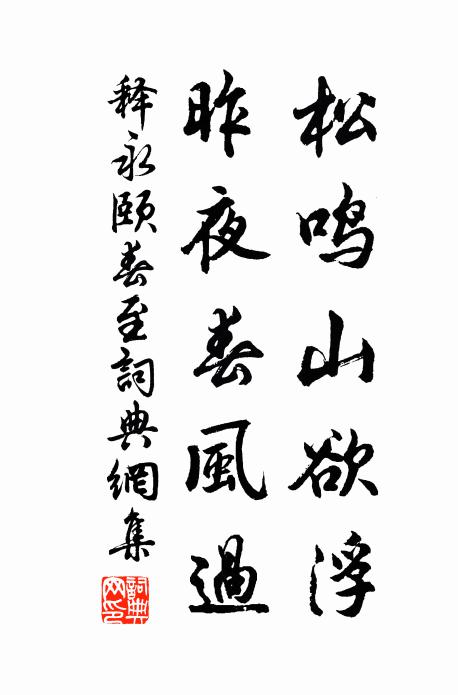 松鸣山欲浮
昨夜春風過
释永頤春至詞典網集
詞典網印